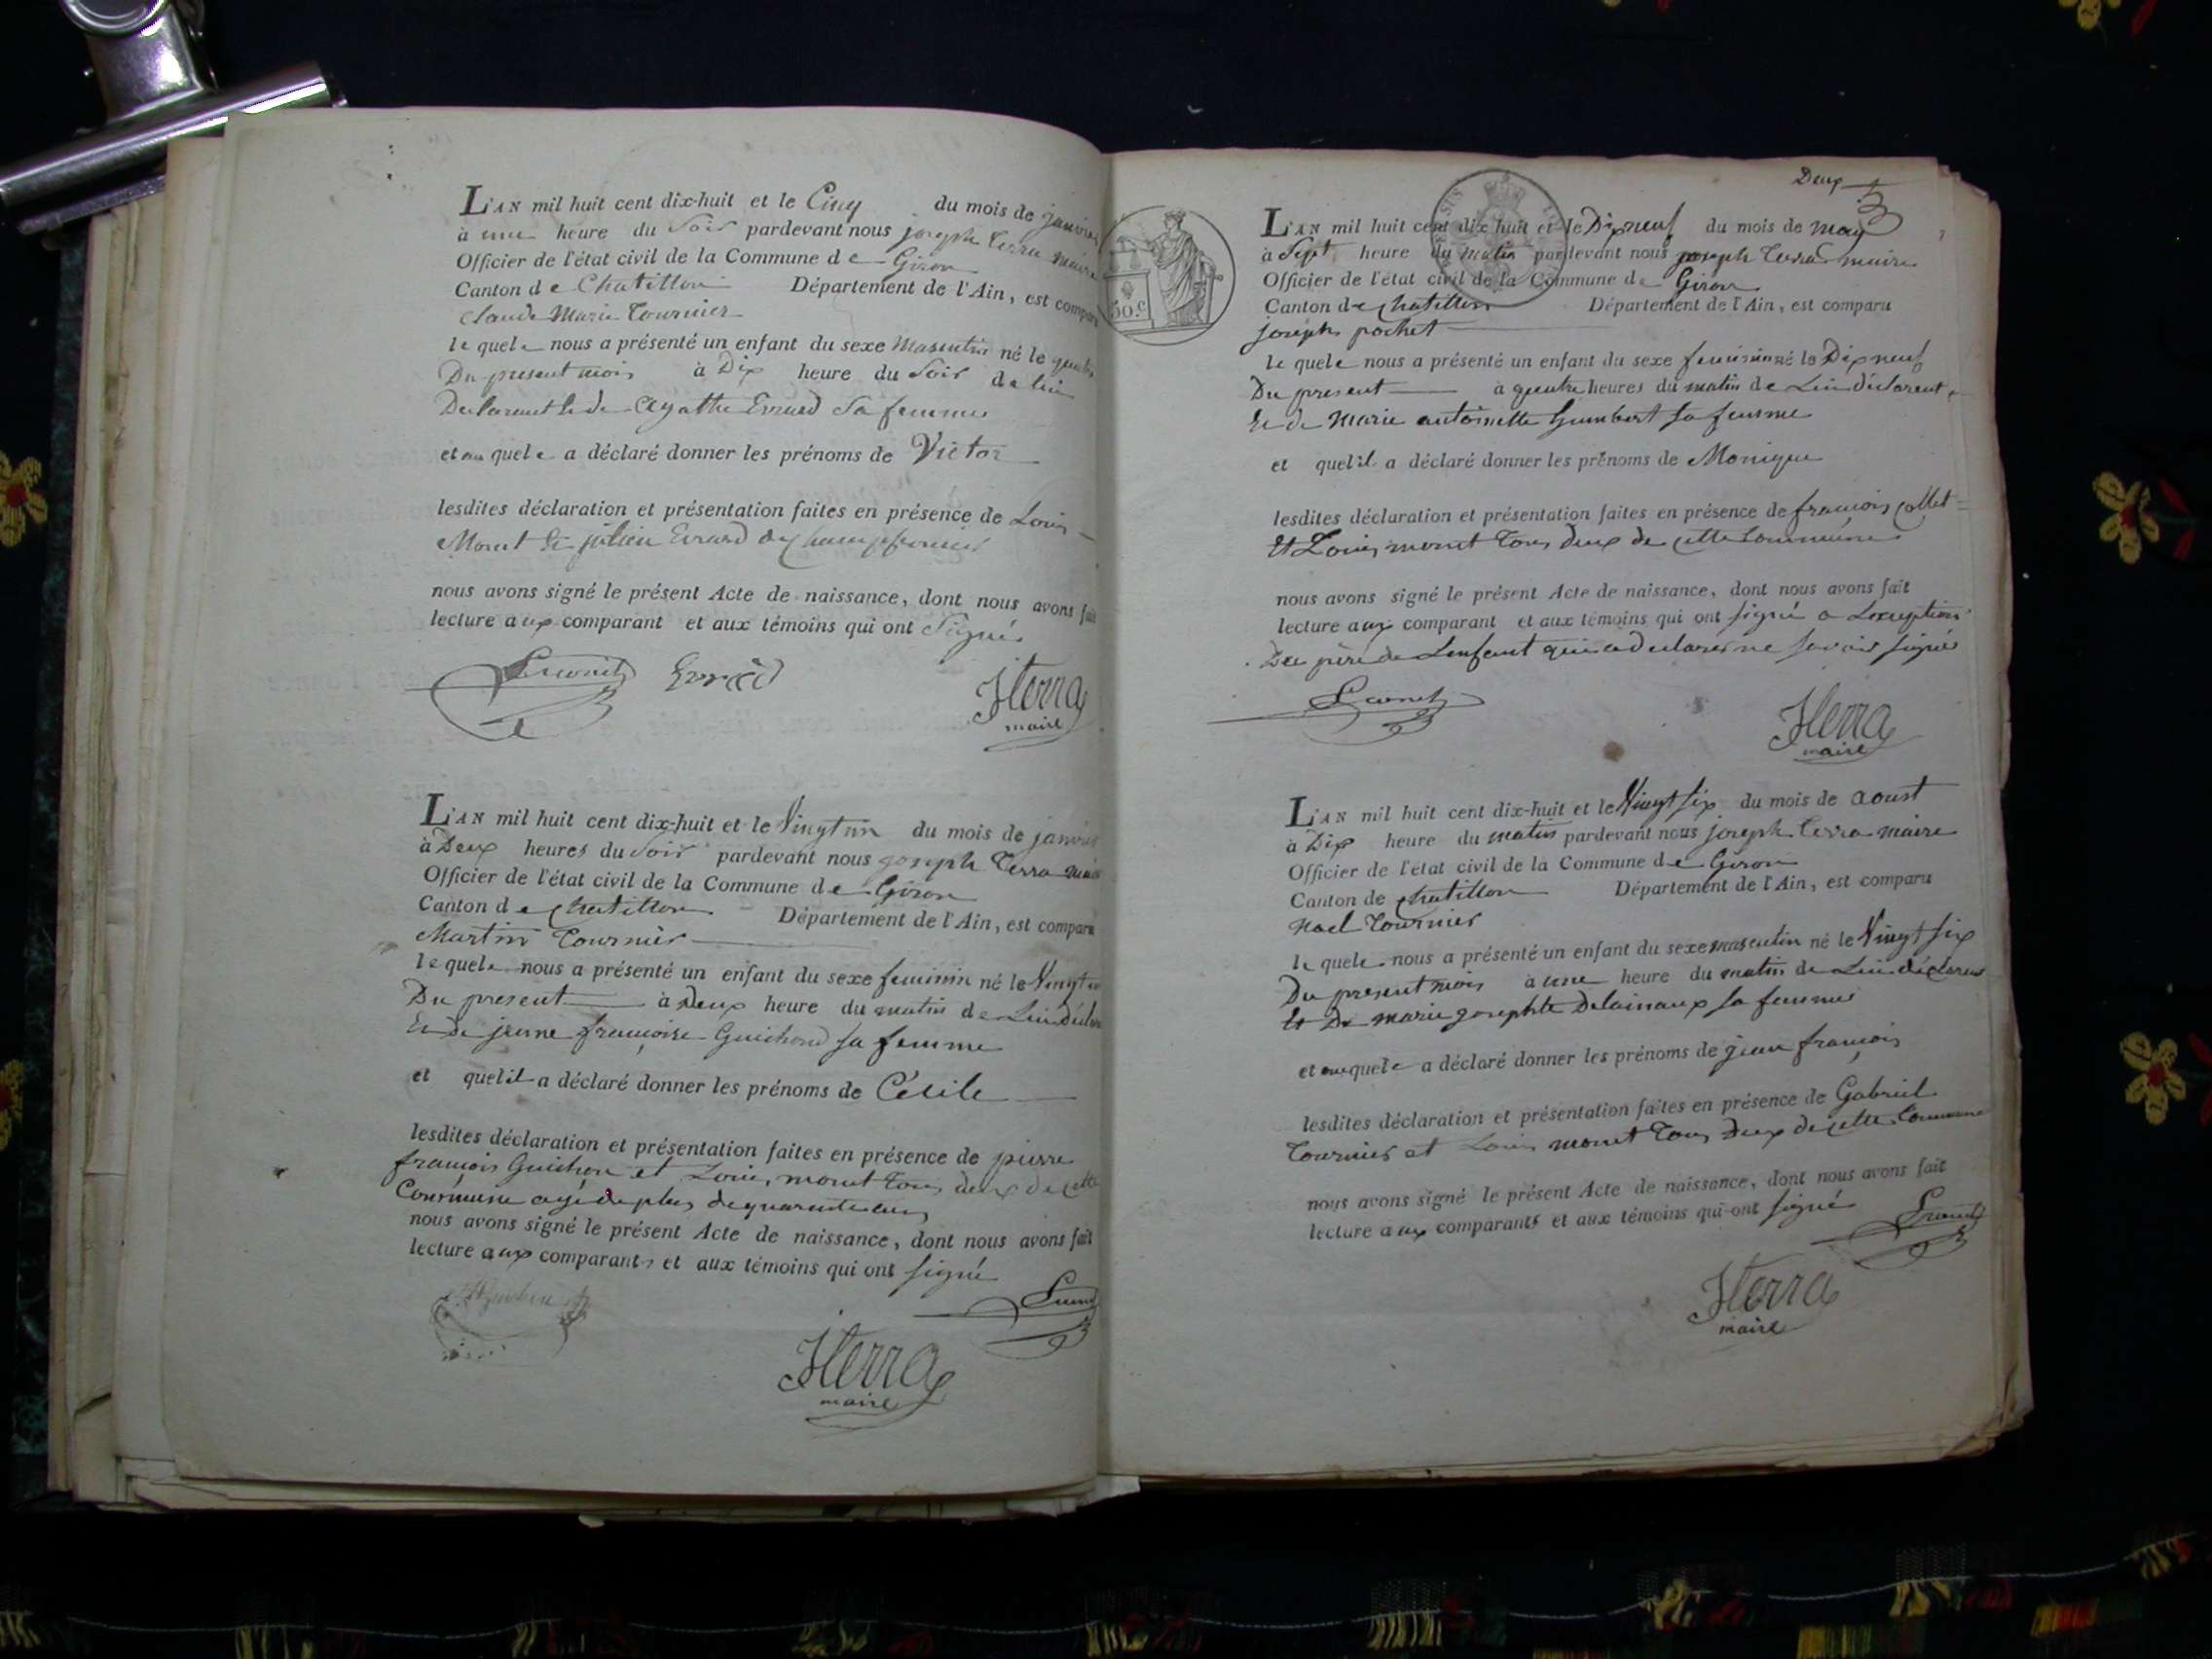 L'AN mil huit cent dix-huit et le Cinq du mois de janvier
à une heure du Soir pardevant nous joseph Terra maire
Officier de l'état civil de la Commune de Giron
Canton de Chatillon Département de l'Ain, est comparu
Claude Marie Tournier
le quele nous a présenté un enfant du sexe Masculin né le quatre
Du present mois à Dix heure du Soir de lui
Declarant Et de Agathe Evrard Sa femme
et au quele a déclaré donner les prénoms de Victor
lesdites déclaration et présentation faites en présence de Louis
Monet Et julien Evrard de Champfromier
nous avons signé le présent Acte de naissance, dont nous avons fait
lecture aux comparant et aux témoins qui ont Signé
Lmonet Evrard JTerra
maire
L'AN mil huit cent dix-huit et le Vingt un du mois de janvier
à Deux heures du Soir pardevant nous joseph Terra maire
Officier de l'état civil de la Commune de Giron
Canton de Chatillon Département de l'Ain, est comparu
Martin Tournier
le quele nous a présenté un enfant du sexe feminin né le Vingt un
Du present à Deux heure du matin de Lui déclarant
Et de jeanne françoise Guichon sa femme
et quelil a déclaré donner les prénoms de Cécile
lesdites déclaration et présentation faites en présence de pierre
françois Guichon et Louis monet tous deux de cette
Commune agé de plus de quarante ans
nous avons signé le présent Acte de naissance, dont nous avons fait
lecture aux comparants et aux témoins qui ont signé
Lmonet
JTerra
maire
Deux
50.c
L'AN mil huit cent dix-huit et le Dix neuf du mois de may
à Sept heure du matin pardevant nous joseph Terra maire
Officier de l'état civil de la Commune de Giron
Canton de Chatillon Département de l'Ain, est comparu
joseph pochet
le quele nous a présenté un enfant du sexe feminin né le Dix neuf
Du present à quatre heures du matin de Lui déclarent
Et de Marie antoinette humbert sa femme
et quelil a déclaré donner les prénoms de Monique
lesdites déclaration et présentation faites en présence de françois Collet
Et Louis monet tous deux de cette Commune
nous avons signé le présent Acte de naissance, dont nous avons fait
lecture aux comparant et aux témoins qui ont signé a Lexception
Du père de Lenfant qui a declarer ne savoir signé
Lmonet
JTerra
maire
L'AN mil huit cent dix-huit et le Vingt six du mois de aoust
à Dix heure du matin pardevant nous joseph Terra maire
Officier de l'état civil de la Commune de Giron
Canton de Chatillon Département de l'Ain, est comparu
Noel Tournier
le quele nous a présenté un enfant du sexe masculin né le Vingt six
Du present mois à une heure du matin de Lui déclarent
Et De marie josephte Delainaux sa femme
et auquele a déclaré donner les prénoms de jean françois
lesdites déclaration et présentation faites en présence de Gabriel
Tournier et Louis monet tous deux de cette Commune
nous avons signé le présent Acte de naissance, dont nous avons fait
lecture aux comparants et aux témoins qui ont signé
Lmonet
JTerra
maire